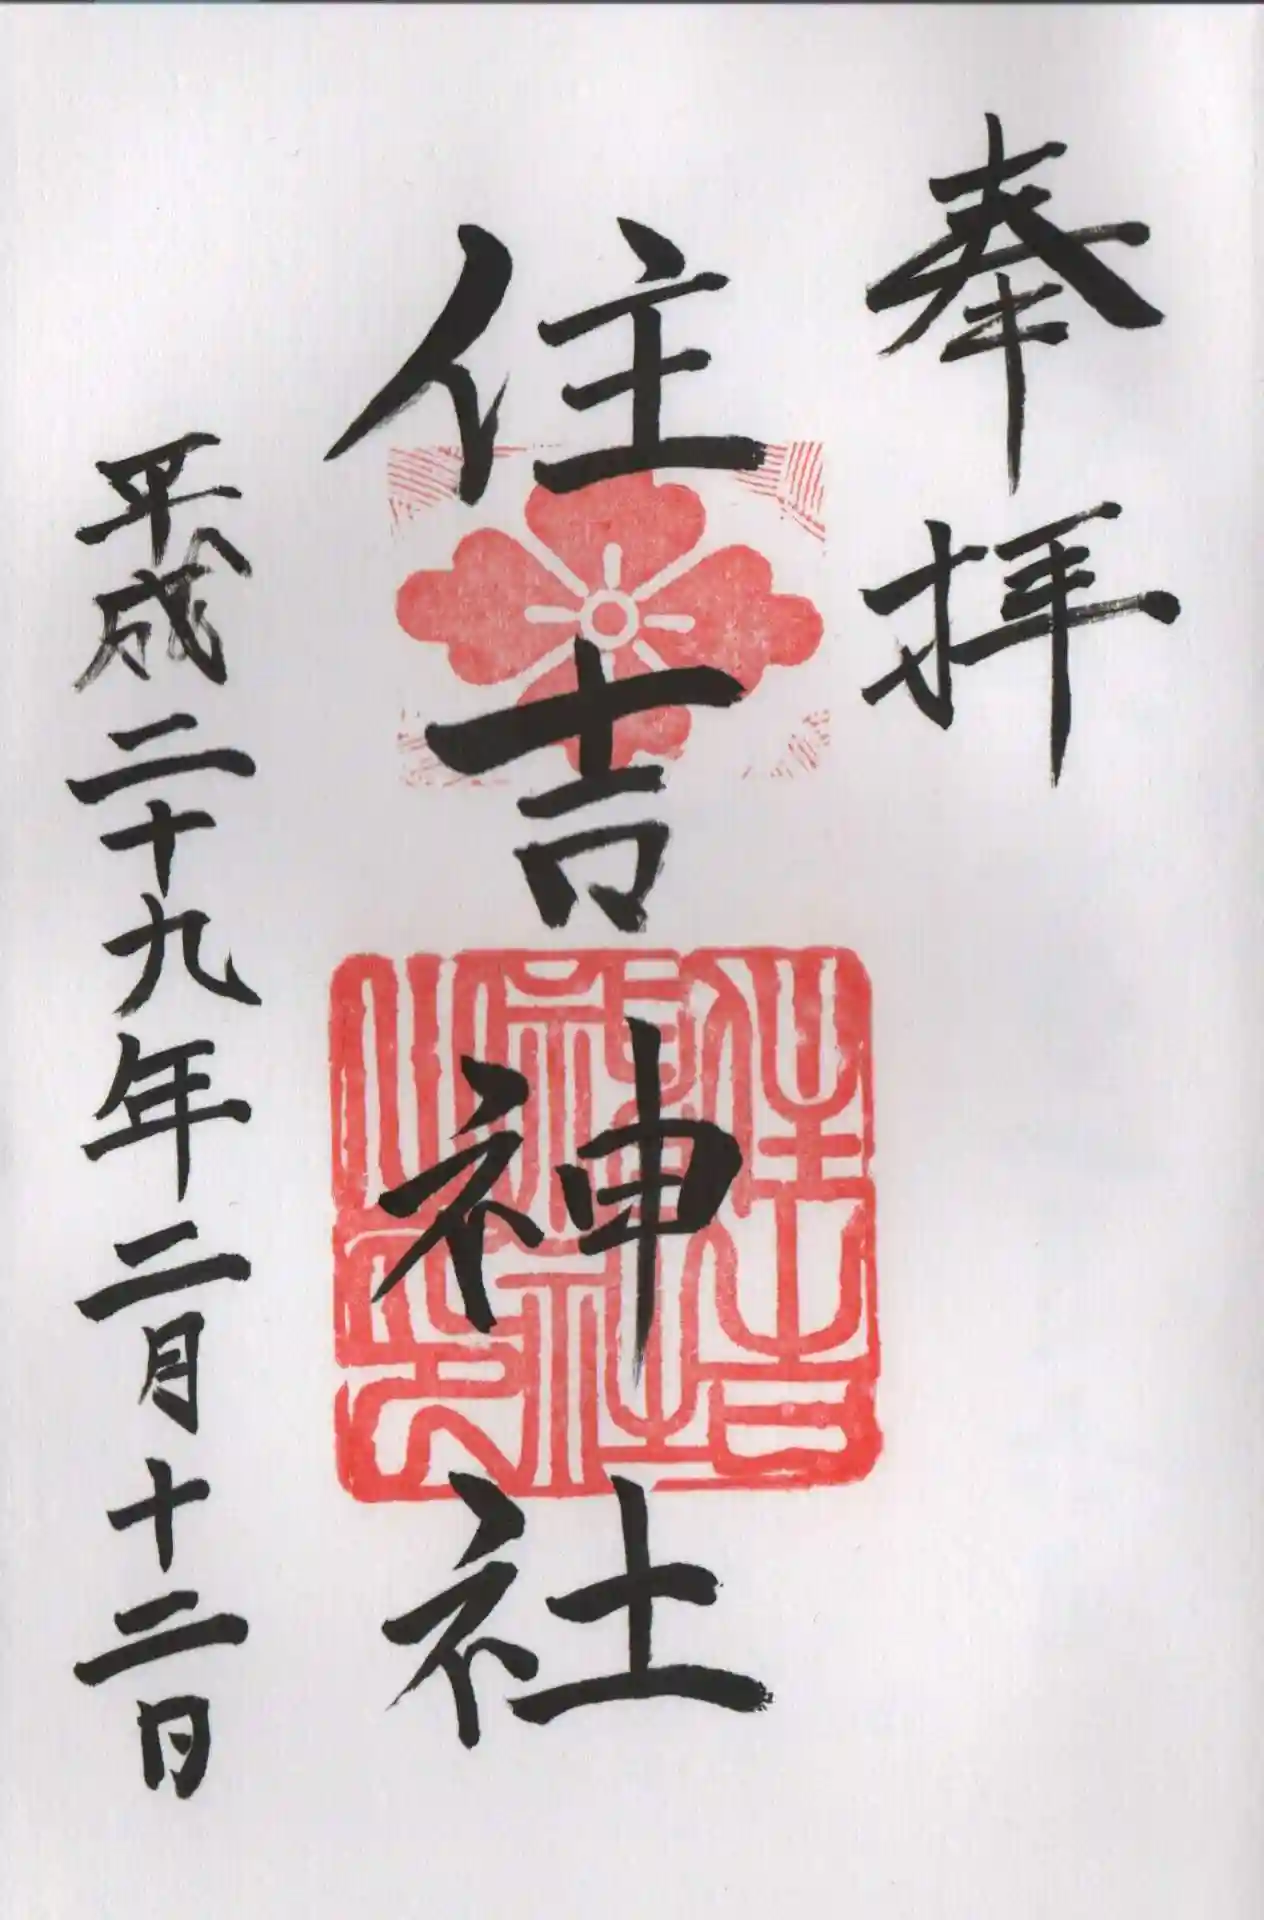 奉拝
住吉神社
平成二十九年二月十二日
住吉
神社
之印